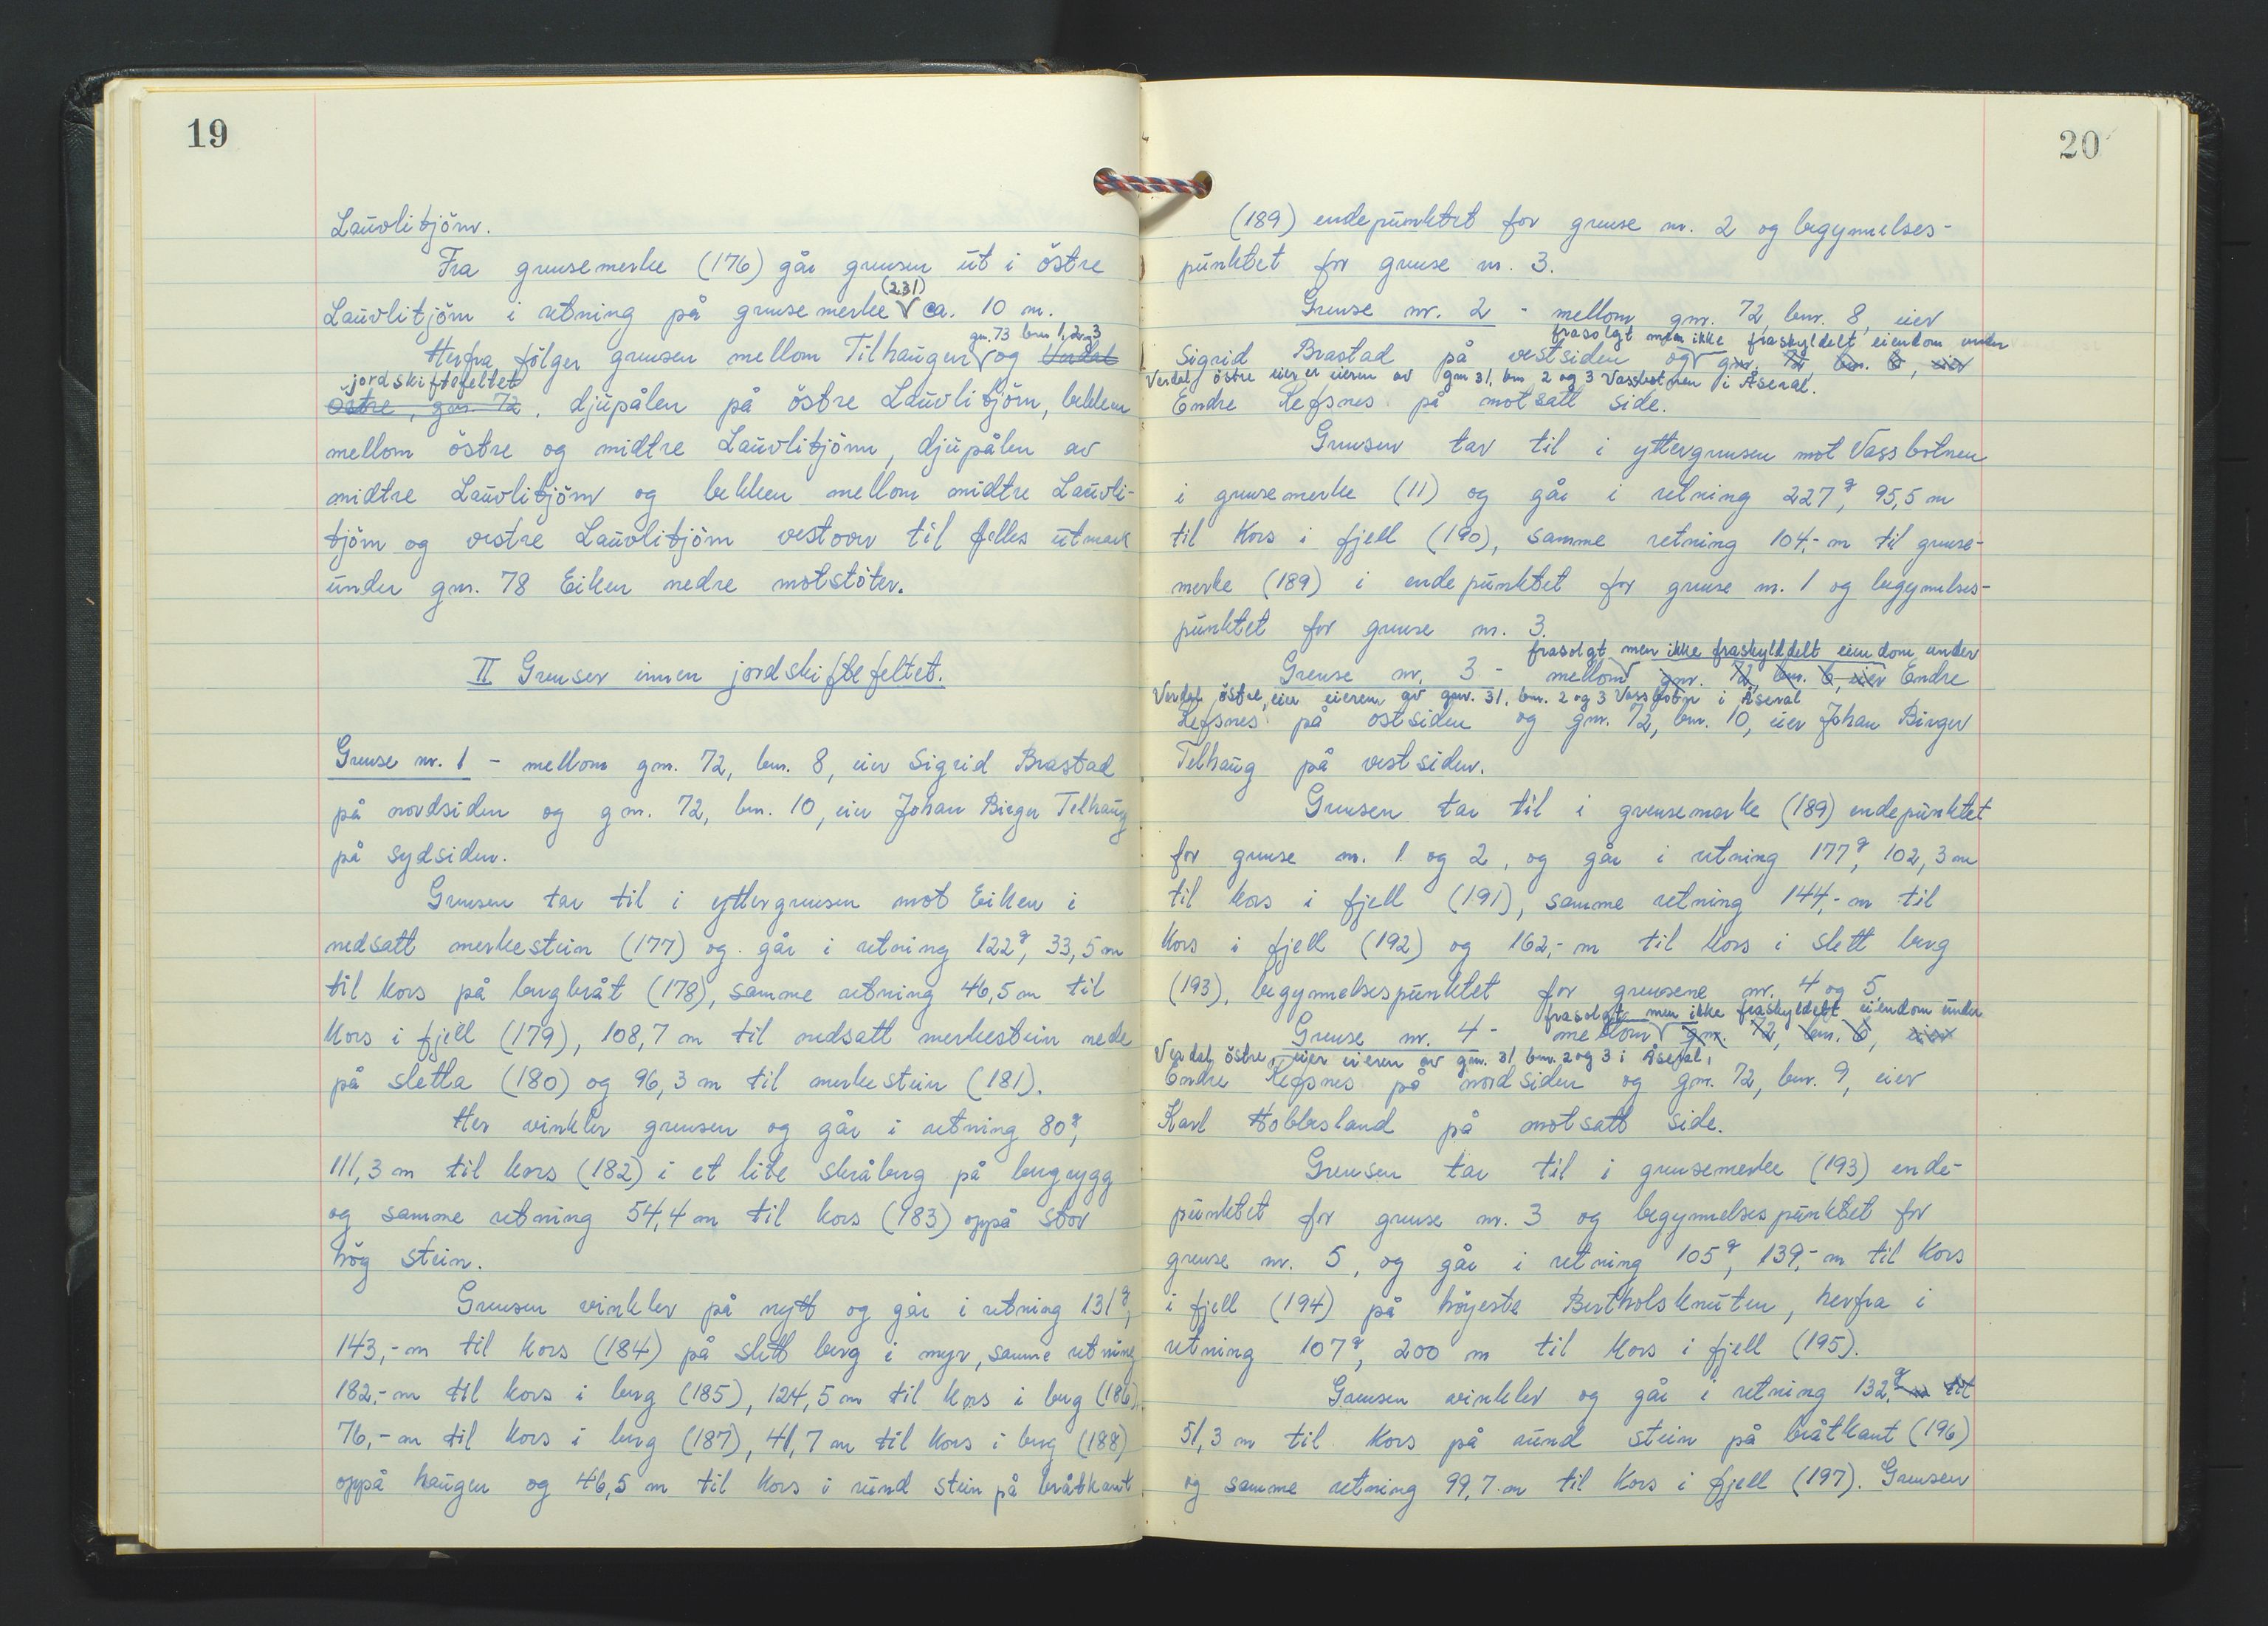 19
Lauvlitjörn.
Fra grensemerke (176) går grensen ut i östre
(231)
Lauvlitjörn i retning på grensemerke V ca. 10 m.
gnr. 73 bnr 1, 2 og 3
Herfra fölger grensen mellom Tilhaugen V og Verdal
jordskiftefeltet
östre, gnr. 72, djupålen på östre Lauvlitjörn, bekken
mellom östre og midtre Lauvlitjörn, djupålen av
midtre Lauvlitjörn og bekken mellom midtre Lauvli-
tjörn og vestre Lauvlitjörn vestover til felles utmark
under gnr. 78 Eiken nedre motstöter.
II Grenser innen jordskiftefeltet.
Grense nr. 1 - mellom gnr. 72, bnr. 8, eier Sigrid Brastad
på nordsiden og gnr. 72, bnr. 10, eier Johan Birger Telhaug
på sydsiden.
Grensen tar til i yttergrensen mot Eiken i
nedsatt merkestein (177) og går i retning 122g, 33,5 m
til kors på bergbråt (178), samme retning 46,5 m til
kors i fjell (179), 108,7 m til nedsatt merkestein nede
på sletta (180) og 96,3 m til merkestein (181).
Her vinkler grensen og går i retning 80g,
111,3 m til kors (182) i et lite skråberg på bergrygg
og samme retning 54,4 m til kors (183) oppå stor
hög stein.
Grensen vinkler på nytt og går i retning 131g,
143,- m til kors (184) på slett berg i myr, samme retning
182,- m til kors i berg (185), 124,5 m til kors i berg (186)
76,- m til kors i berg (187), 41,7 m til kors i berg (188)
oppå haugen og 46,5 m til kors i rund stein på bråtkant
20
(189) endepunktet for grense nr. 2 og begynnelses-
punktet for grense nr. 3.
Grense nr. 2 - mellom gnr. 72, bnr. 8, eier
frasolgt men ikke fraskyldelt eiendom under
Sigrid Brastad på vestsiden og V gnr. 72, bnr. 6, eier
Verdal östre eier er eieren av gnr 31, bnr 2 og 3 Vassbotnen i Åseral.
Endre Refsnes på motsatt side.
Grensen tar til i yttergrensen mot Vassbotnen
i grensemerke (11) og går i retning 227g, 95,5 m
til kors i fjell (190), samme retning 104,- m til grense-
merke (189) i endepunktet for grense nr. 1 og begynnelses-
punktet for grense nr. 3.
frasolgt men ikke fraskylddelt eiendom under
Grense nr. 3 - mellom V gnr. 72, bnr. 6, eier Endre
Verdal östre, eier eieren av gnr. 31, bnr. 2 og 3 Vassbotn i Åseral
Refsnes på ostsiden og gnr. 72, bnr. 10, eier Johan Birger
Telhaug på vestsiden.
Grensen tar til i grensemerke (189) endepunktet
for grense nr. 1 og 2, og går i retning 177g, 102,3 m
til kors i fjell (191), samme retning 144,- m til
kors i fjell (192) og 162,- m til kors i slett berg
(193), begynnelsespunktet for grensene nr. 4 og 5.
frasolgt men ikke fraskyldelt eiendom under
Grense nr. 4 - mellom V gnr. 72, bnr. 6, eier
Verdal östre, eier eieren av gnr. 31 bnr. 2 og 3 i Åseral,
Endre Refsnes på nordsiden og gnr. 72, bnr. 9, eier
Karl Hobbesland på motsatt side.
Grensen tar til i grensemerke (193) ende-
punktet for grense nr. 3 og begynnelsespunktet for
grense nr. 5, og går i retning 105g, 139,- m til kors
i fjell (194) på höyeste Bertholsknuten, herfra i
retning 107g, 200 m til kors i fjell (195).
Grensen vinkler og går i retning 132,g m til
51,3 m til kors på rund stein på bråtkant (196)
og samme retning 99,7 m til kors i fjell (197). Grensen